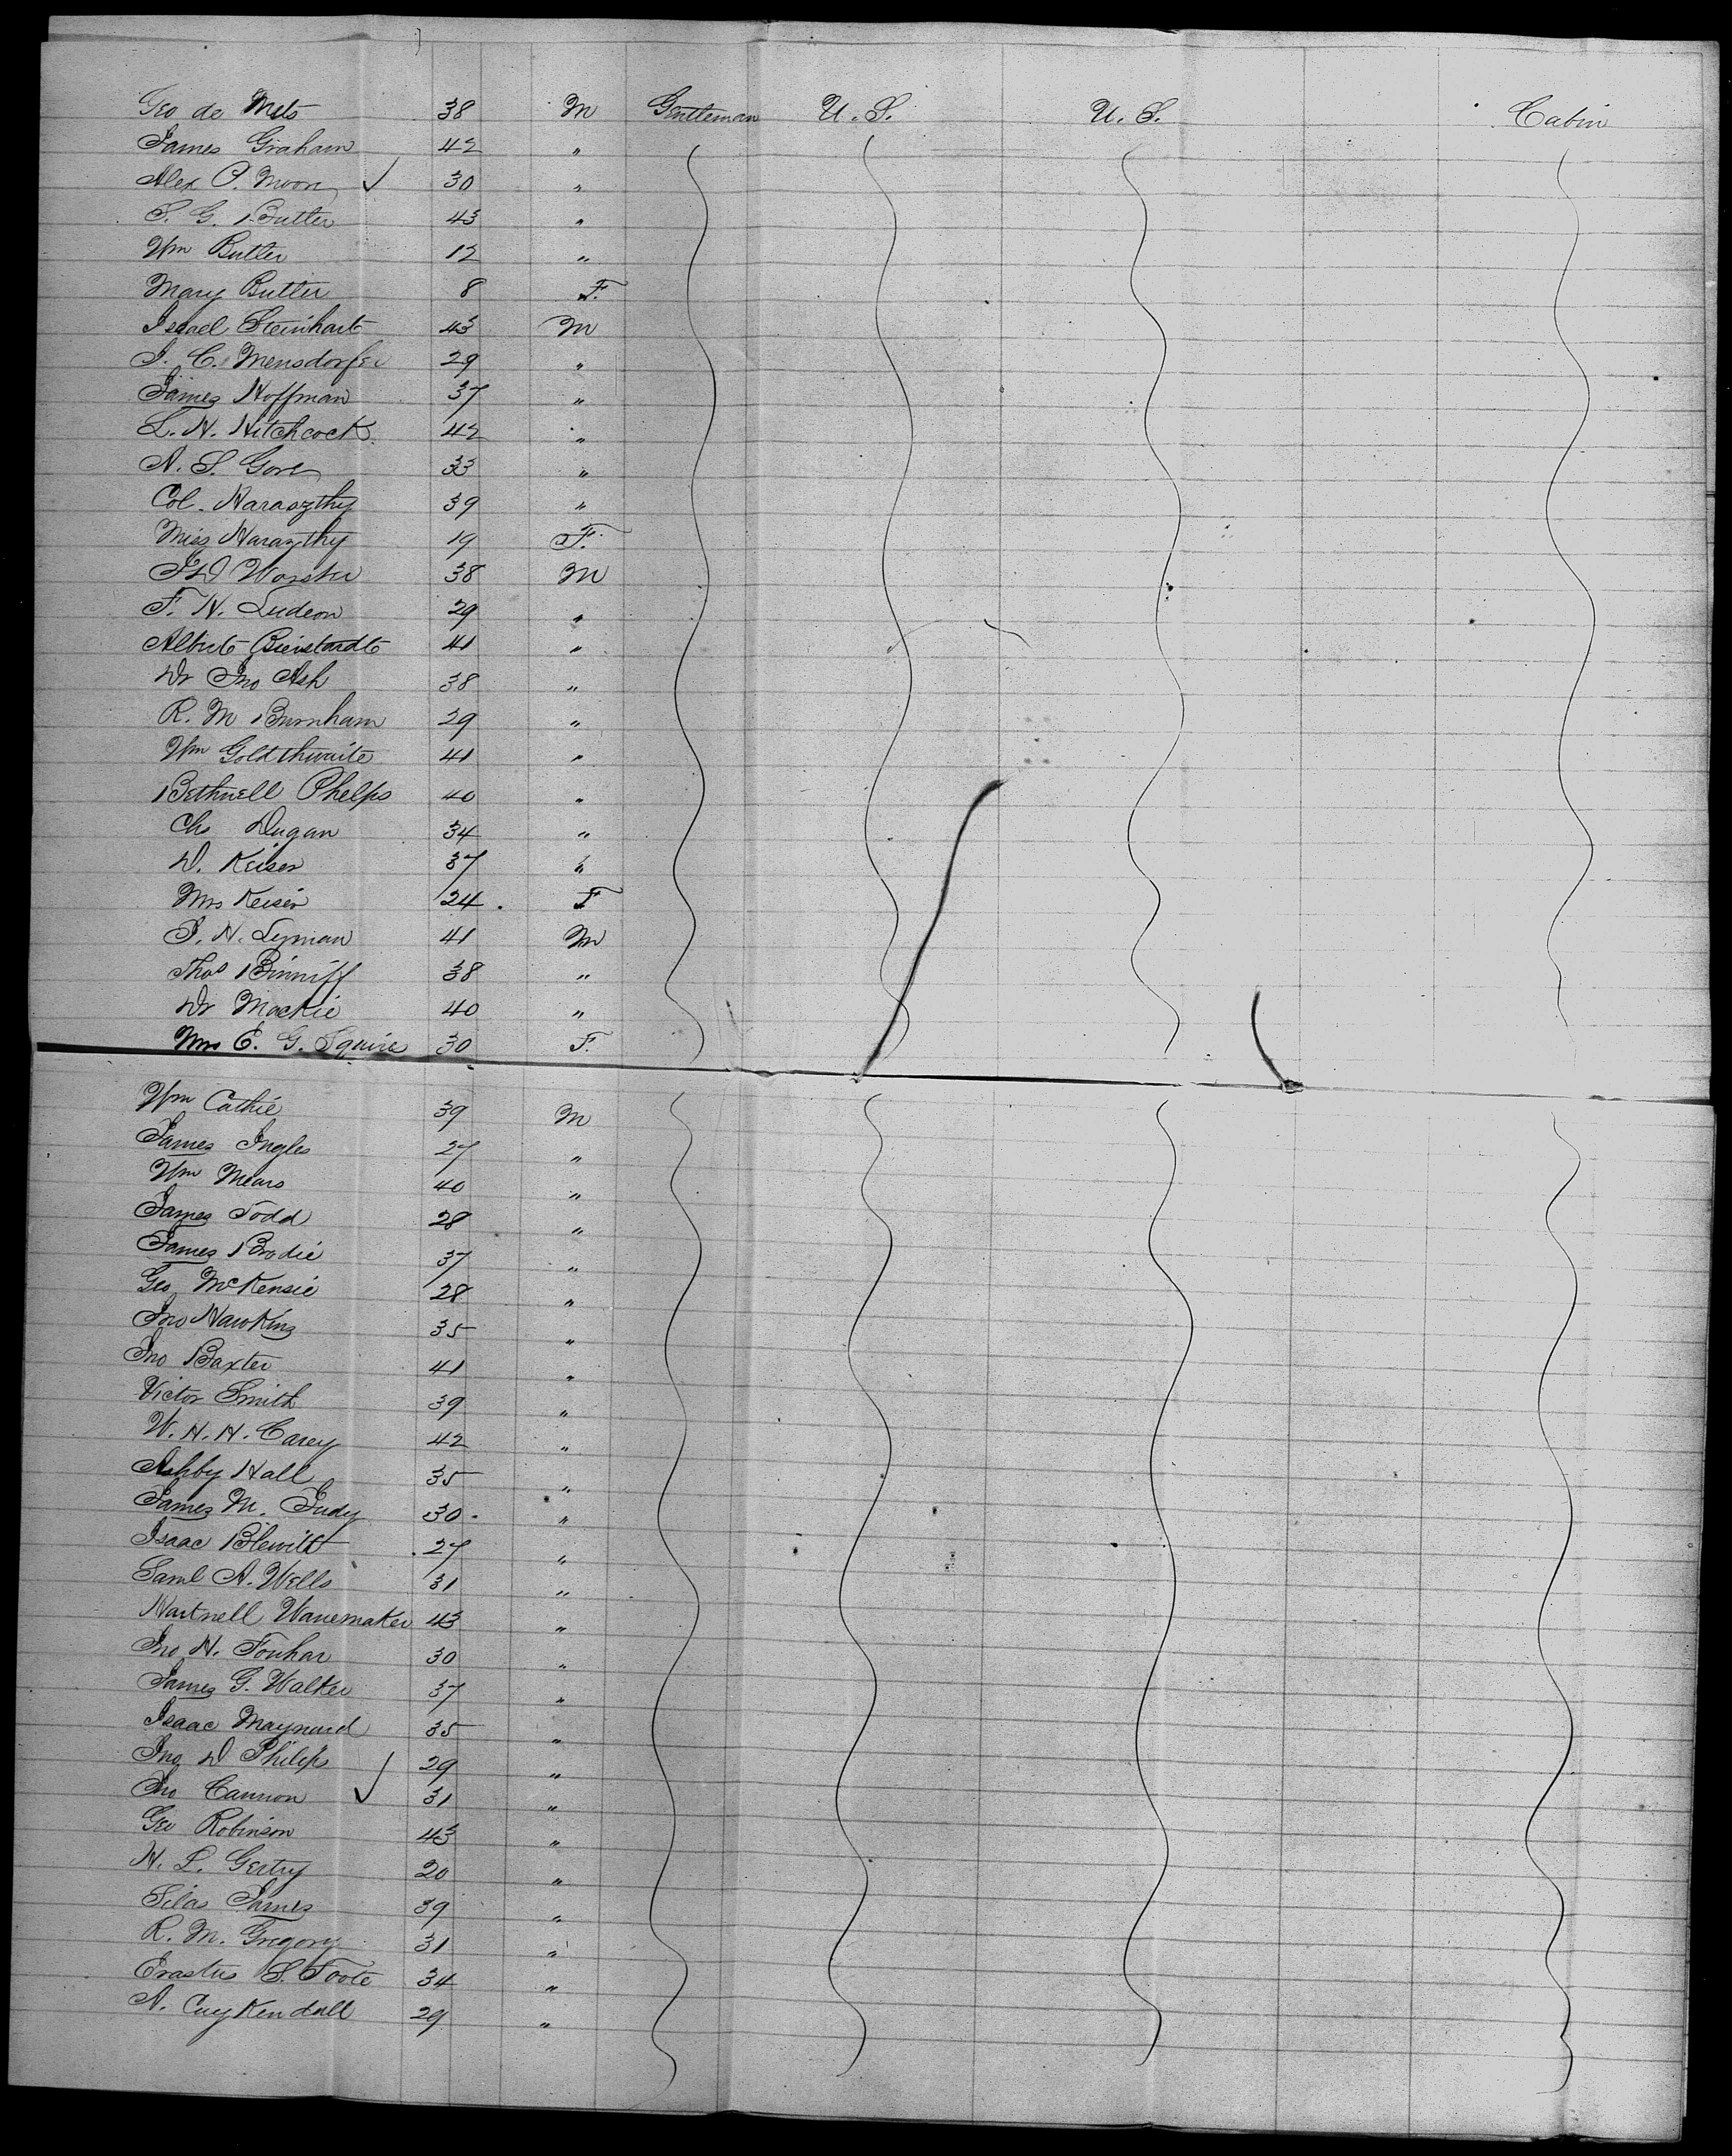 Geo de Mets 38 M Gentleman U.S. U.S. Cabin
James Graham 42 "
Alex P. Moon 30 "
S. G. Butler 43 "
Wm Butler 12 "
Mary Butler 8 F.
Israel Steinhart 43 M
J. C. Mensdorfer 29 "
James Hoffman 37 "
L. H. Hitchcock. 42 "
A. S. Gove 33 "
Col. Haraszthy 39 "
Miss Harazthy 19 F.
38 M
F. H. Ludeon 29 "
Albert 41 "
Dr Jno Ash 38 "
R. M Burnham 29 "
Wm Goldthwaite 41 "
Bethuell Phelps 40 "
Chs Dugan 34 "
D. Keiser 37 "
Mrs Keiser 24. F
J. H. Lyman 41 M
Thos Binniff 38 "
Dr Mackie 40 "
Mrs E. G. Squire 30 F.
Wm Cathie 39 M
James Ingles 27 "
Wm Mears 40 "
James Todd 28 "
James Brodie 37 "
Geo McKensie 28 "
Jno Hawkins 35 "
Jno Baxter 41 "
Victor Smith 39 "
W. H. H. Carey 42 "
Ashby Hall 35 "
James M. Judy 30. "
Isaac Blewitt 27 "
Saml A. Wells 31 "
Hartnell Wanemaker 43 "
Jno H. 30 "
James G. Walker 37 "
Isaac Maynard 35 "
Jno D Philips 29 "
Jno Cannon 31 "
Geo Robinson 43 "
H. L. Gertry 20 "
Silas James 39 "
R. M. Gregory 31 "
Erastus S. Foote 34 "
A. Cuykendall 29 "